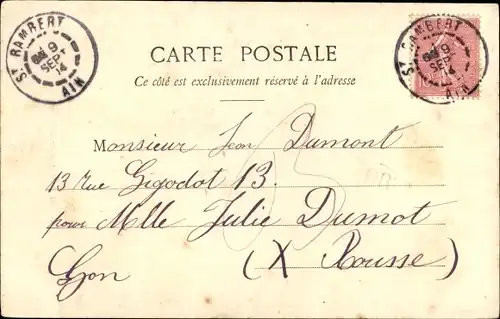 ST RAMBERT
9
SEPT
14
AIN
ST RAMBERT
9
SEPT
14
AIN
CARTE POSTALE
Ce côté est exclusivement réservé à l'adresse
Monsieur Jean Dumont
13 Rue Gigodot 13.
pour Mlle Julie Dumot
Lyon (X Rousse)